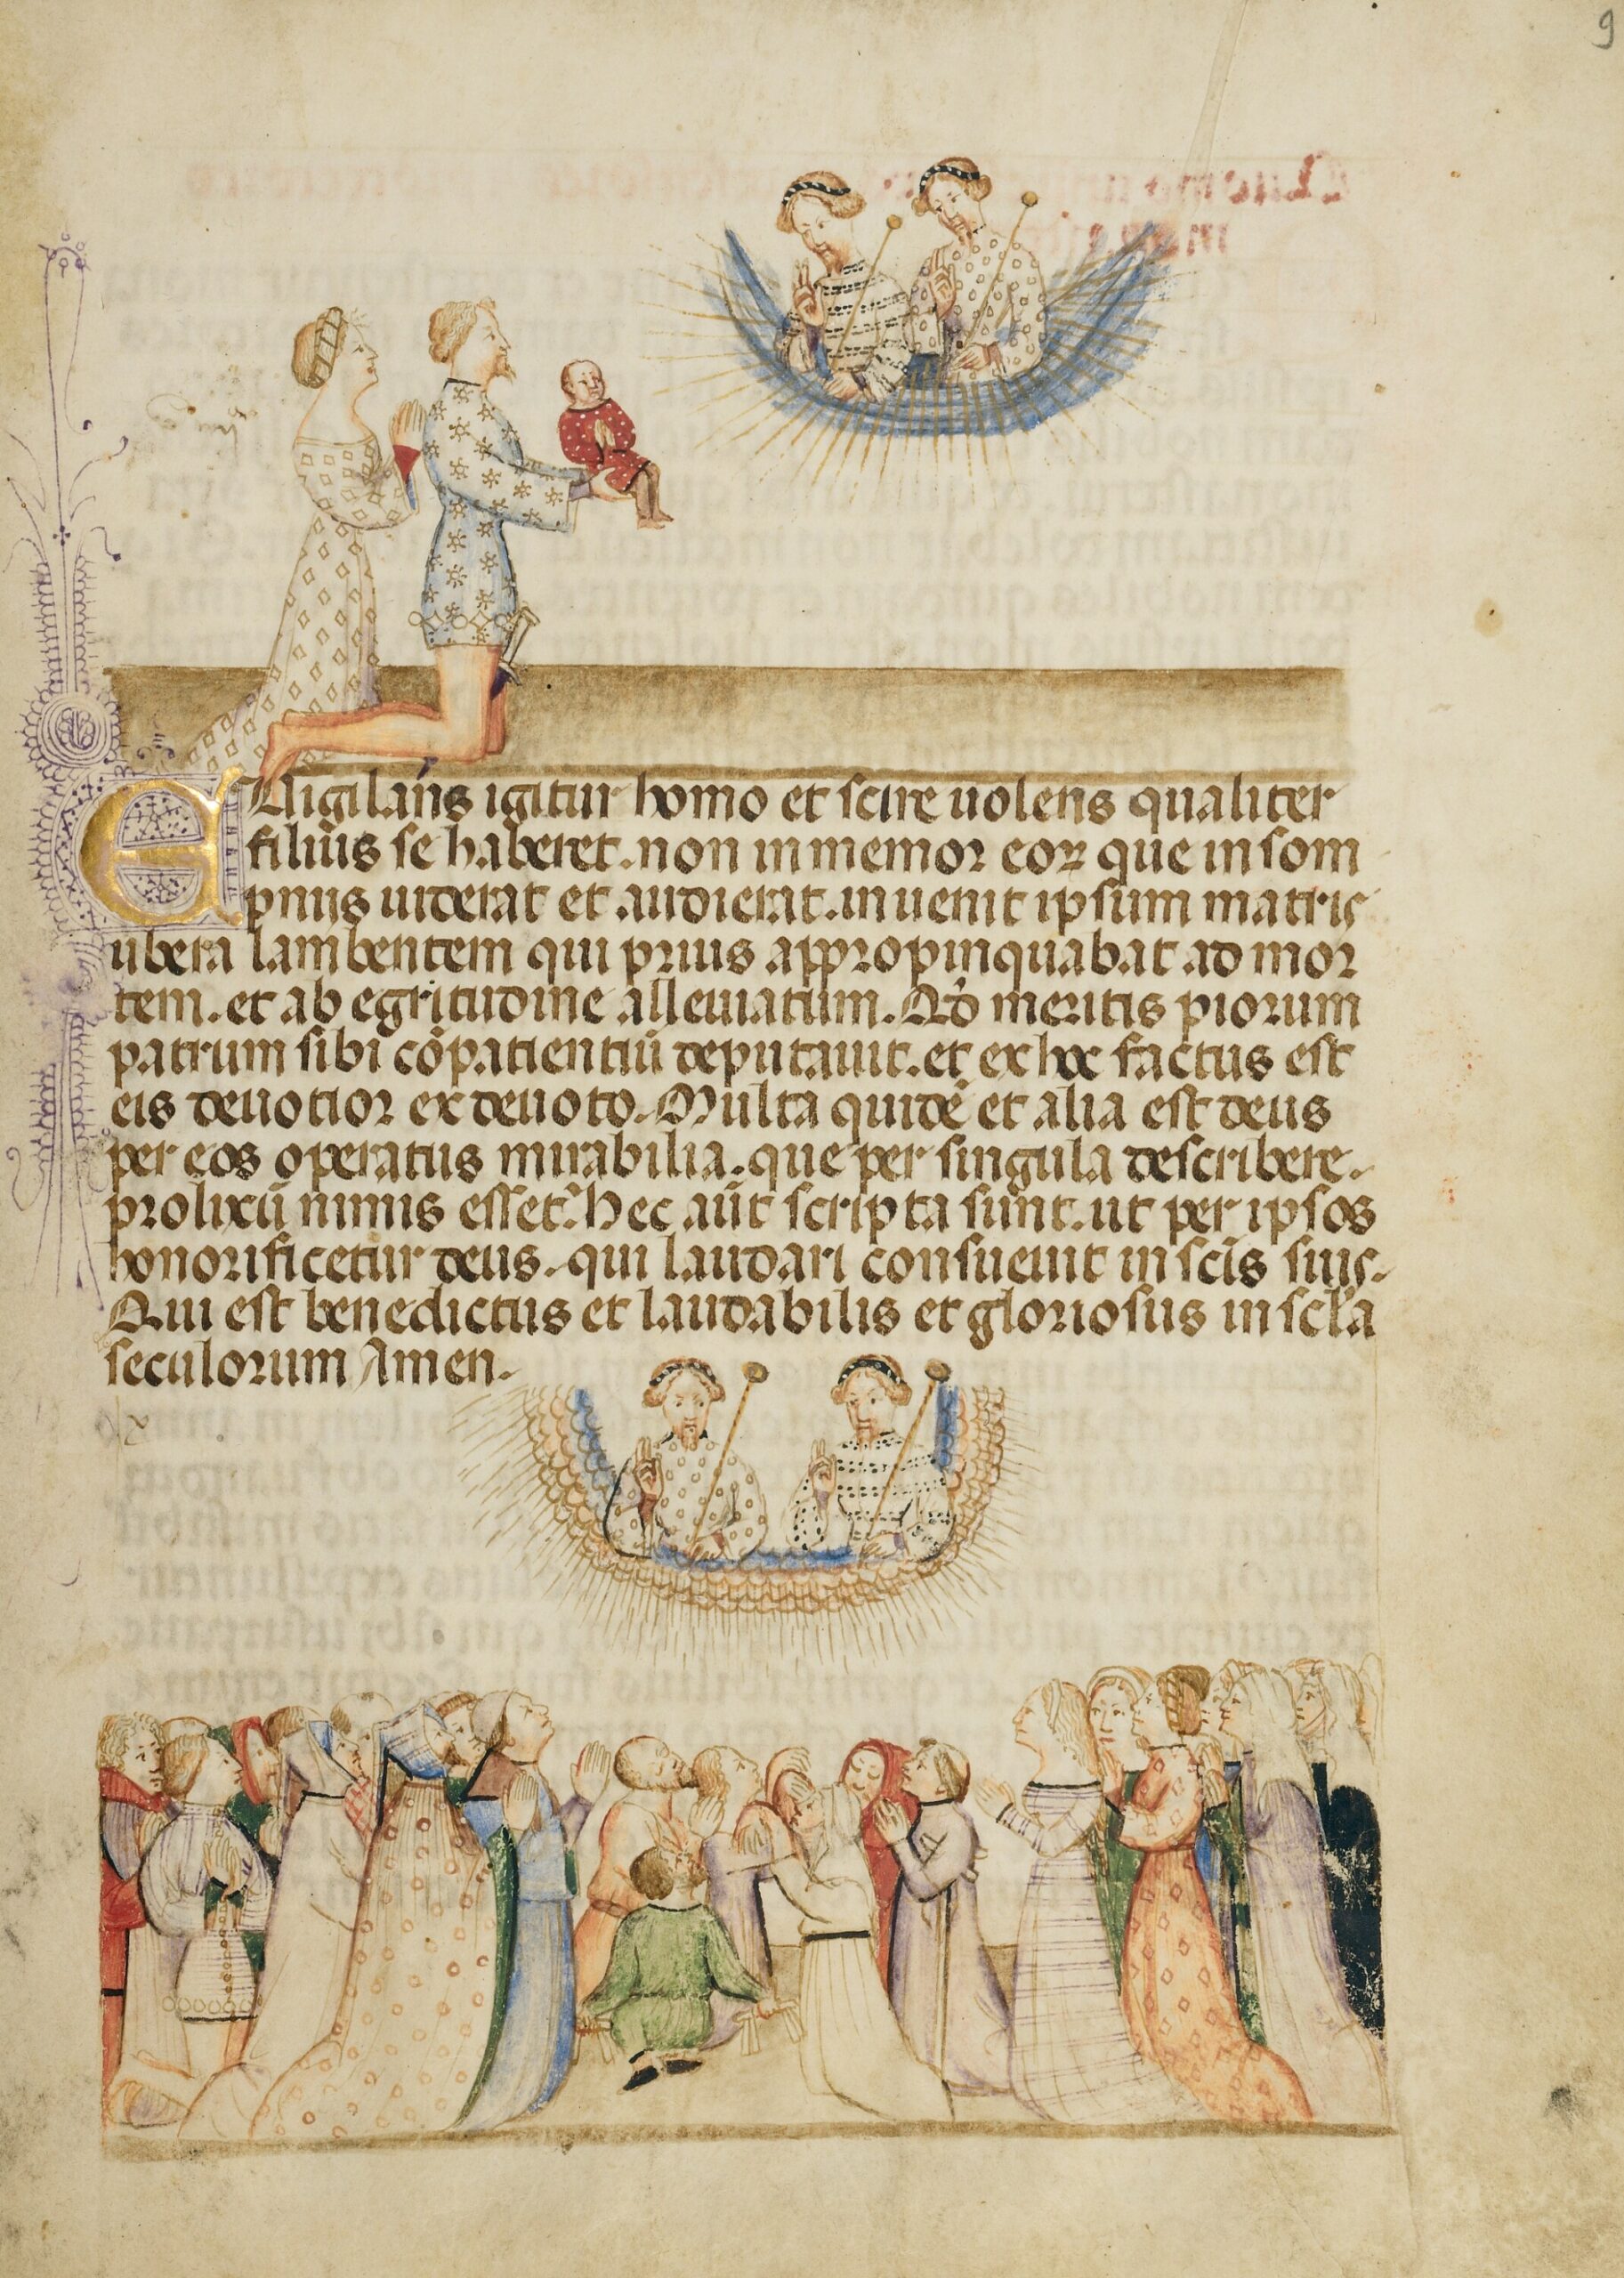 9
EUigilans igitur homo et scire uolens qualiter
filius se haberet. non inmemor eoꝝ que in som
pniis uiderat et audierat. inuenit ipsum matris
ubera lambentem qui prius appropinquabat ad mor
tem. et ab egritudine alleuiatum. Qđ meritis piorum
patrum sibi cōpatientiū deputauit. et ex hoc factus est
eis deuotior ex deuoto. Multa quidē et alia est deus
per eos operatus mirabilia. que per singula describere
prolixū nimis esset. hec aūt scripta sunt. ut per ipsos
honorificetur deus. qui laudari consueuit in scīs suis.
Qui est benedictus et laudabilis et gloriosus in scl̄a
seculorum Amen.